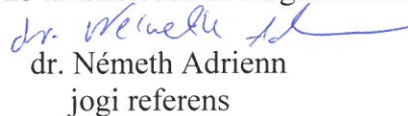 dr. Németh A
dr. Németh Adrienn
jogi referens